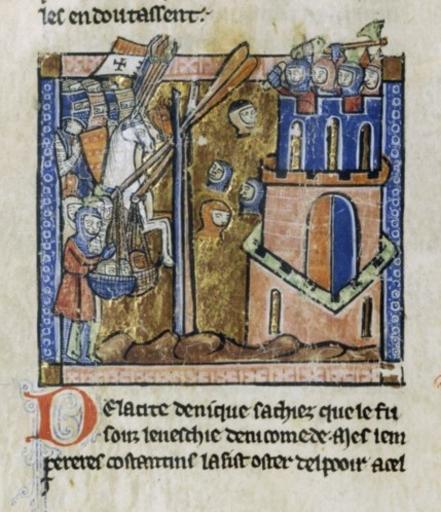 les en doutassent·
De la cite de nique sachiez que le fu
souz leveschie de nicomede· Mes lem
pereres costantins la fist oster del pooir a cel